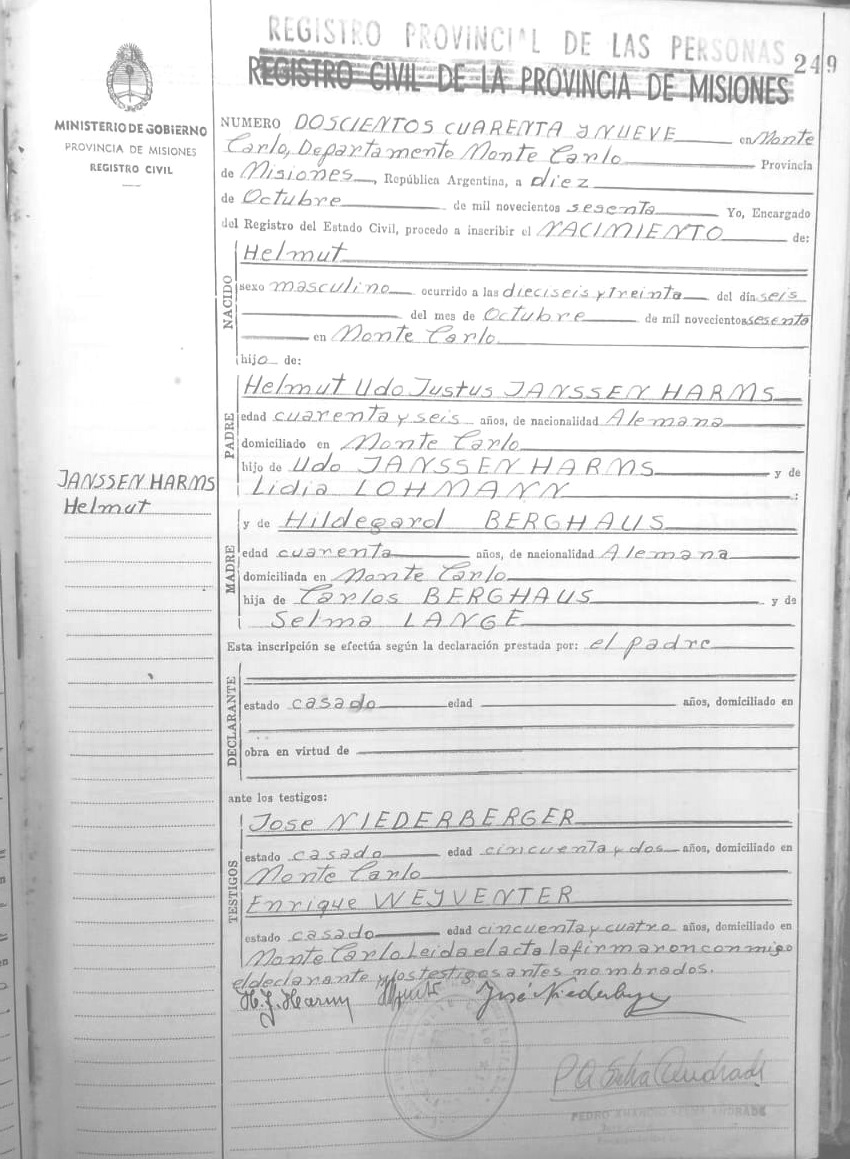 REGISTRO PROVINCIAL DE LAS PERSONAS
249
REGISTRO CIVIL DE LA PROVINCIA DE MISIONES
MINISTERIO DE GOBIERNO
PROVINCIA DE MISIONES
REGISTRO CIVIL
NUMERO DOSCIENTOS CUARENTA Y NUEVE en Monte
Carlo, Departamento Monte Carlo Provincia
de Misiones, República Argentina, a diez
de Octubre de mil novecientos sesenta Yo, Encargado
del Registro del Estado Civil, procedo a inscribir el NACIMIENTO de:
NACIDO
Helmut
sexo masculino ocurrido a las dieciseis y treinta del dia seis
del mes de Octubre de mil novecientos sesenta
en Monte Carlo
hijo de:
PADRE
Helmut Udo Justus JANSSEN HARMS
edad cuarenta y seis años, de nacionalidad Alemana
domiciliado en Monte Carlo
hijo de Udo JANSSEN HARMS y de
Lidia LOHMANN :
JANSSEN HARMS
Helmut
MADRE
y de Hildegard BERGHAUS
edad cuarenta años, de nacionalidad Alemana
domiciliada en Monte Carlo
hija de Carlos BERGHAUS y de
Selma LANGE
Esta inscripción se efectúa según la declaración prestada por: el padre
DECLARANTE
estado casado edad años, domiciliado en
obra en virtud de
ante los testigos:
TESTIGOS
Jose NIEDERBERGER
estado casado edad cincuenta y dos años, domiciliado en
Monte Carlo
Enrique WEYVENTER
estado casado edad cincuenta y cuatro años, domiciliado en
Monte Carlo. Leida el acta la firmaron conmigo
el declarante y los testigos antes nombrados.
H. J. Harms José Niederberger
P A Silva Andrade